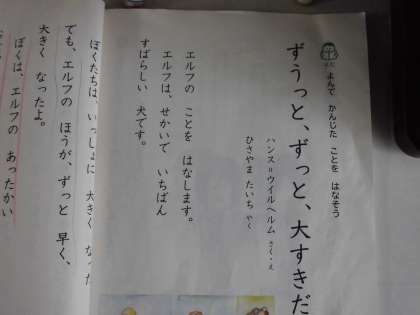 よんで かんじた ことを はなそう
ずうっと、ずっと、大すきだ
ハンス=ウイルヘルム さく・え
ひさやま たいち やく
エルフの ことを はなします。
エルフは、せかいで いちばん
すばらしい 犬です。
ぼくたちは、いっしょに 大きく なった
でも、エルフの ほうが、ずっと 早く、
大きく なったよ。
ぼくは、エルフの あったかい